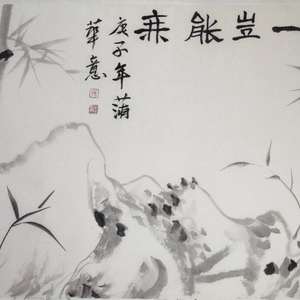 一豈能無
庚子年蒲
華意